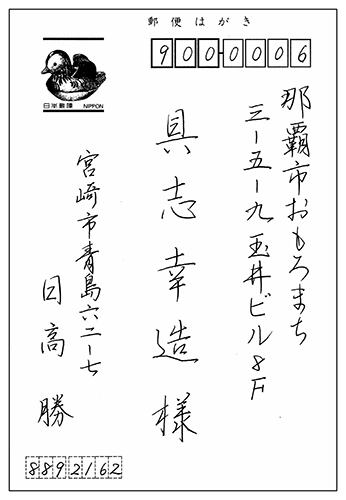 郵便はがき
900-0006
日本郵便 NIPPON
那覇市おもろまち
三-五-九玉井ビル8F
具志幸造様
宮崎市青島六二-七
日高 勝
8892162